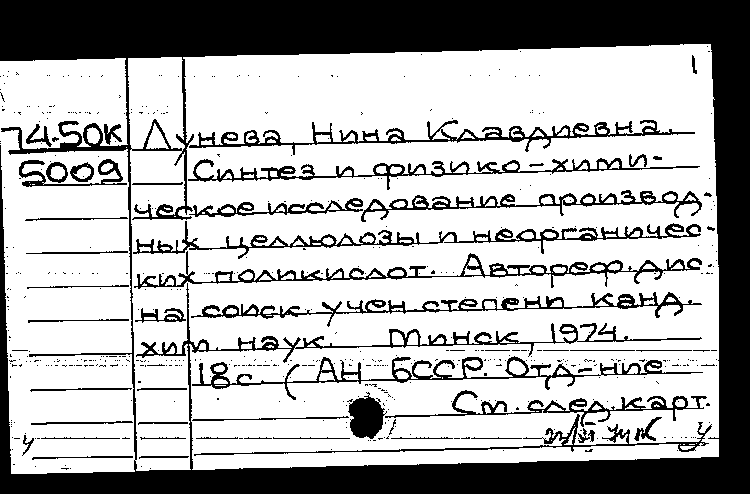 1
74.50К Лунева, Нина Клавдиевна.
5009 Синтез и физико-хими-
ческое исследование производ-
ных целлюлозы и неорганичес-
ких поликислот. Автореф. дис.
на соиск. учен. степени канд.
хим. наук. Минск, 1974.
18 с. (АН БССР. Отд-ние
См. след. карт.
у у